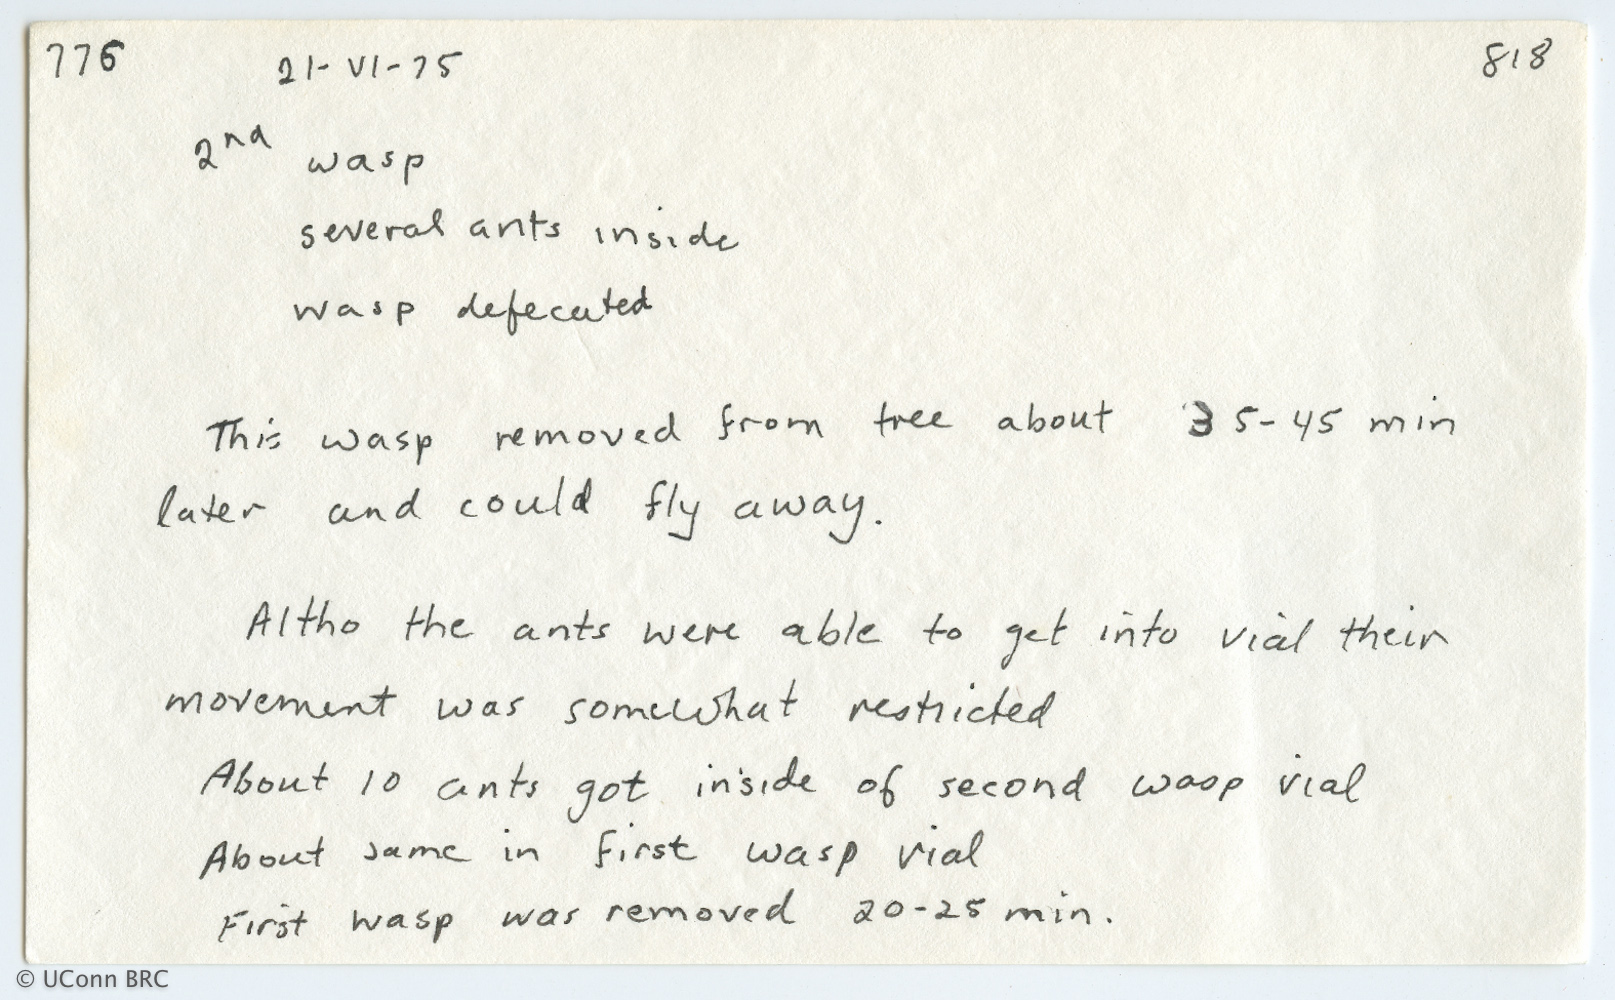 776 21-VI-75 818
2nd wasp
several ants inside
wasp defecated
This wasp removed from tree about 35-45 min
later and could fly away.
Altho the ants were able to get into vial their
movement was somewhat restricted
About 10 ants got inside of second wasp vial
About same in first wasp vial
First wasp was removed 20-25 min.
© UConn BRC